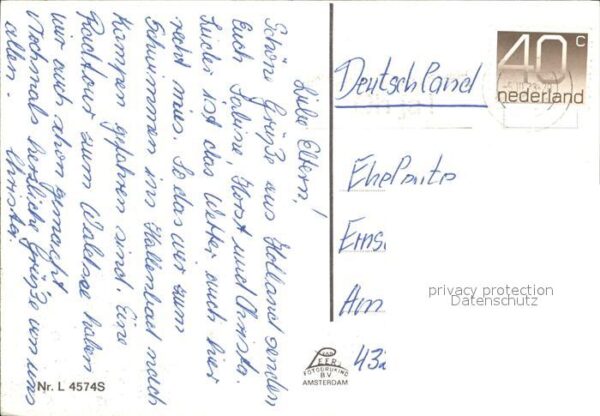 Liebe Eltern!
Schöne Grüße aus Holland senden
Euch Sabine, Horst und Christa.
Leider ist das Wetter auch hier
recht mies. So das wir zum
Schwimmen ins Hallenbad nach
Kampen gefahren sind. Eine
Radtour zum Waldsee haben
wir auch schon gemacht
Nochmals herzliche Grüße von uns
allen. Christa.
40 c
nederland
Deutschland
Eheleute
Erns
Am
43
privacy protection
Datenschutz
VAN
LEER
FOTODRUKIND
B.V.
AMSTERDAM
Nr. L 4574S